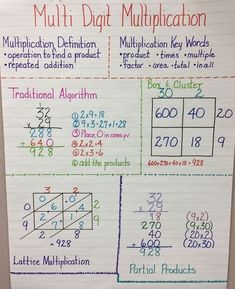 Multi Digit Multiplication
Multiplication Definition
• operation to find a product
• repeated addition
Multiplication Key Words
• product • times • multiple
• factor • area • total • in all
Traditional Algorithm
32
x 29
288
+ 640
928
① 2x9=18
② 9x3=27+1=28
③ Place 0 in ones pv
④ 2x2=4
⑤ 2x3=6
⑥ add the products
Box & Cluster
30 2
600 40 20
270 18 9
600+270+40+18=928
Lattice Multiplication
3 2
0 6 0 4 2
2 7 1 8 9
9 2 8
= 928
32
x 29
18 (9x2)
270 (9x30)
40 (20x2)
+ 600 (20x30)
928
Partial Products